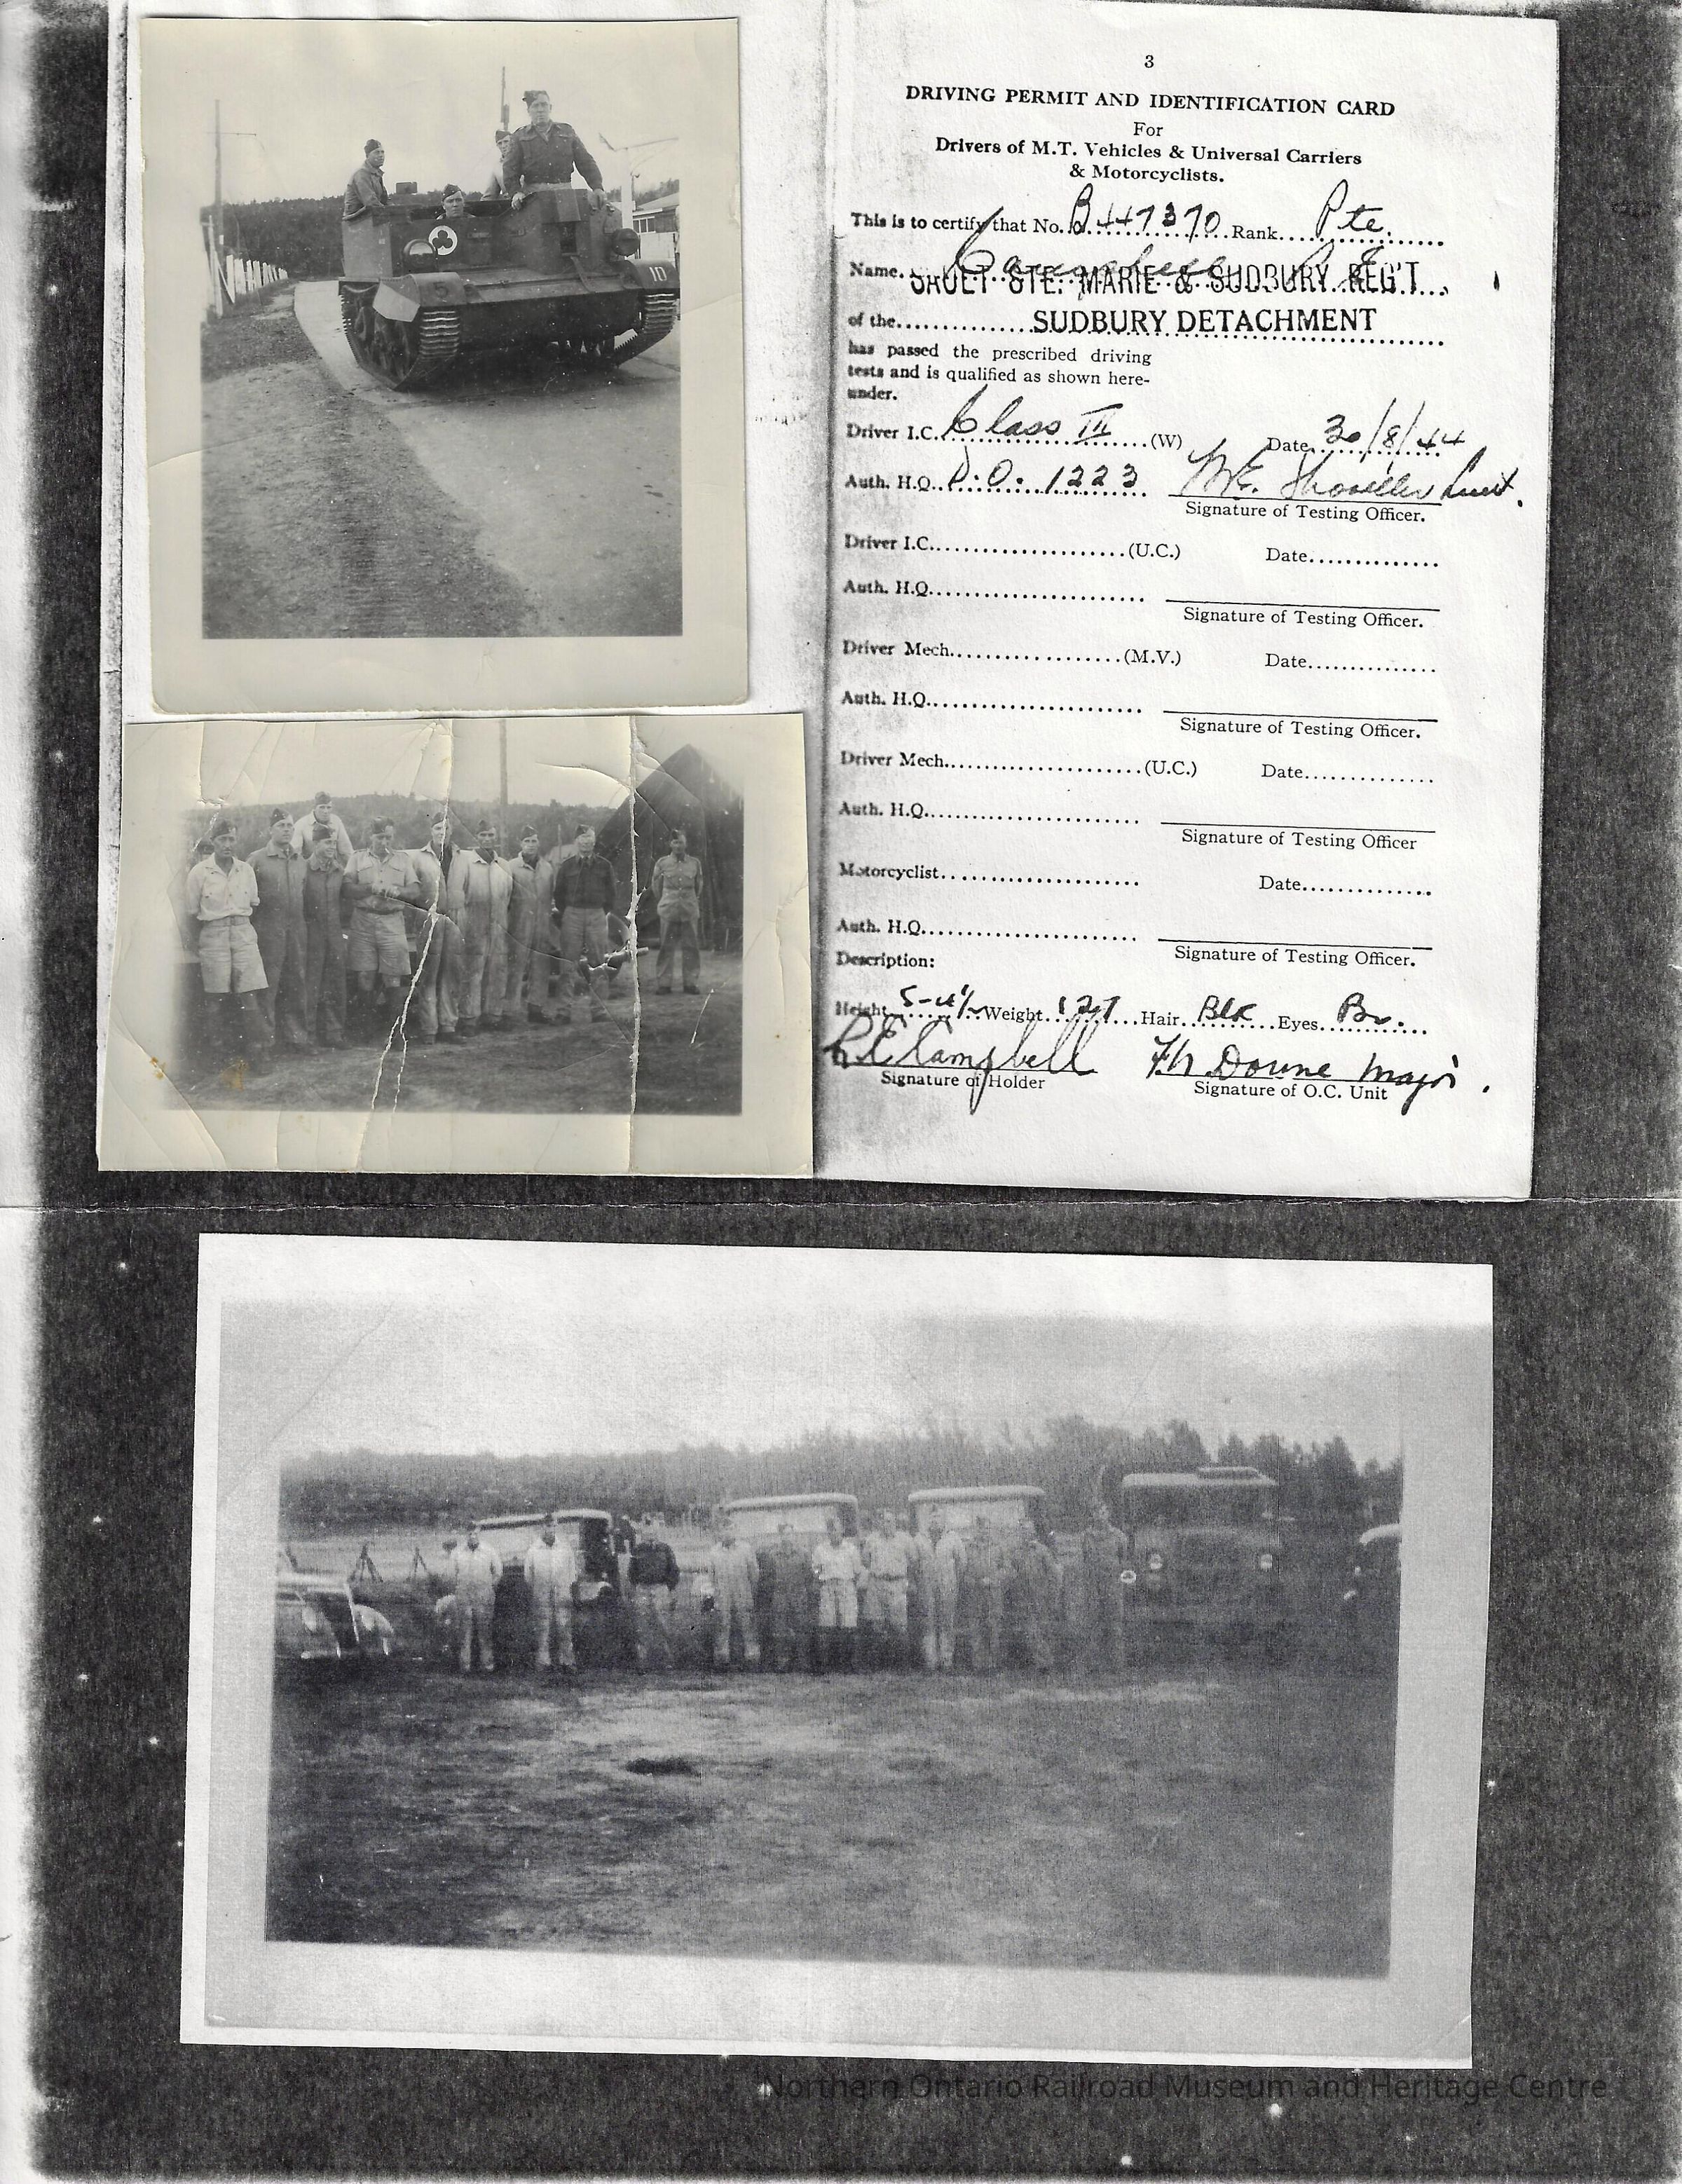 3
DRIVING PERMIT AND IDENTIFICATION CARD
For
Drivers of M.T. Vehicles & Universal Carriers
& Motorcyclists.
This is to certify that No. B 447370 Rank.... Pte.
Name. Campbell R E
SAULT STE. MARIE & SUDBURY REG'T
of the................SUDBURY DETACHMENT
has passed the prescribed driving
tests and is qualified as shown here-
under.
Driver I.C. Class III (W) Date. 30/8/44
Auth. H.Q. D.O. 1223
Signature of Testing Officer.
Driver I.C......................(U.C.) Date..............
Auth. H.Q.........................
Signature of Testing Officer.
Driver Mech...................(M.V.) Date..............
Auth. H.Q.........................
Signature of Testing Officer.
Driver Mech......................(U.C.) Date..............
Auth. H.Q.........................
Signature of Testing Officer
Motorcyclist....................... Date..............
Auth. H.Q.........................
Signature of Testing Officer.
Description:
Height Weight Hair. Blk Eyes. Br.
R E Campbell Major.
Signature of Holder Signature of O.C. Unit
5
10
Northern Ontario Railroad Museum and Heritage Centre